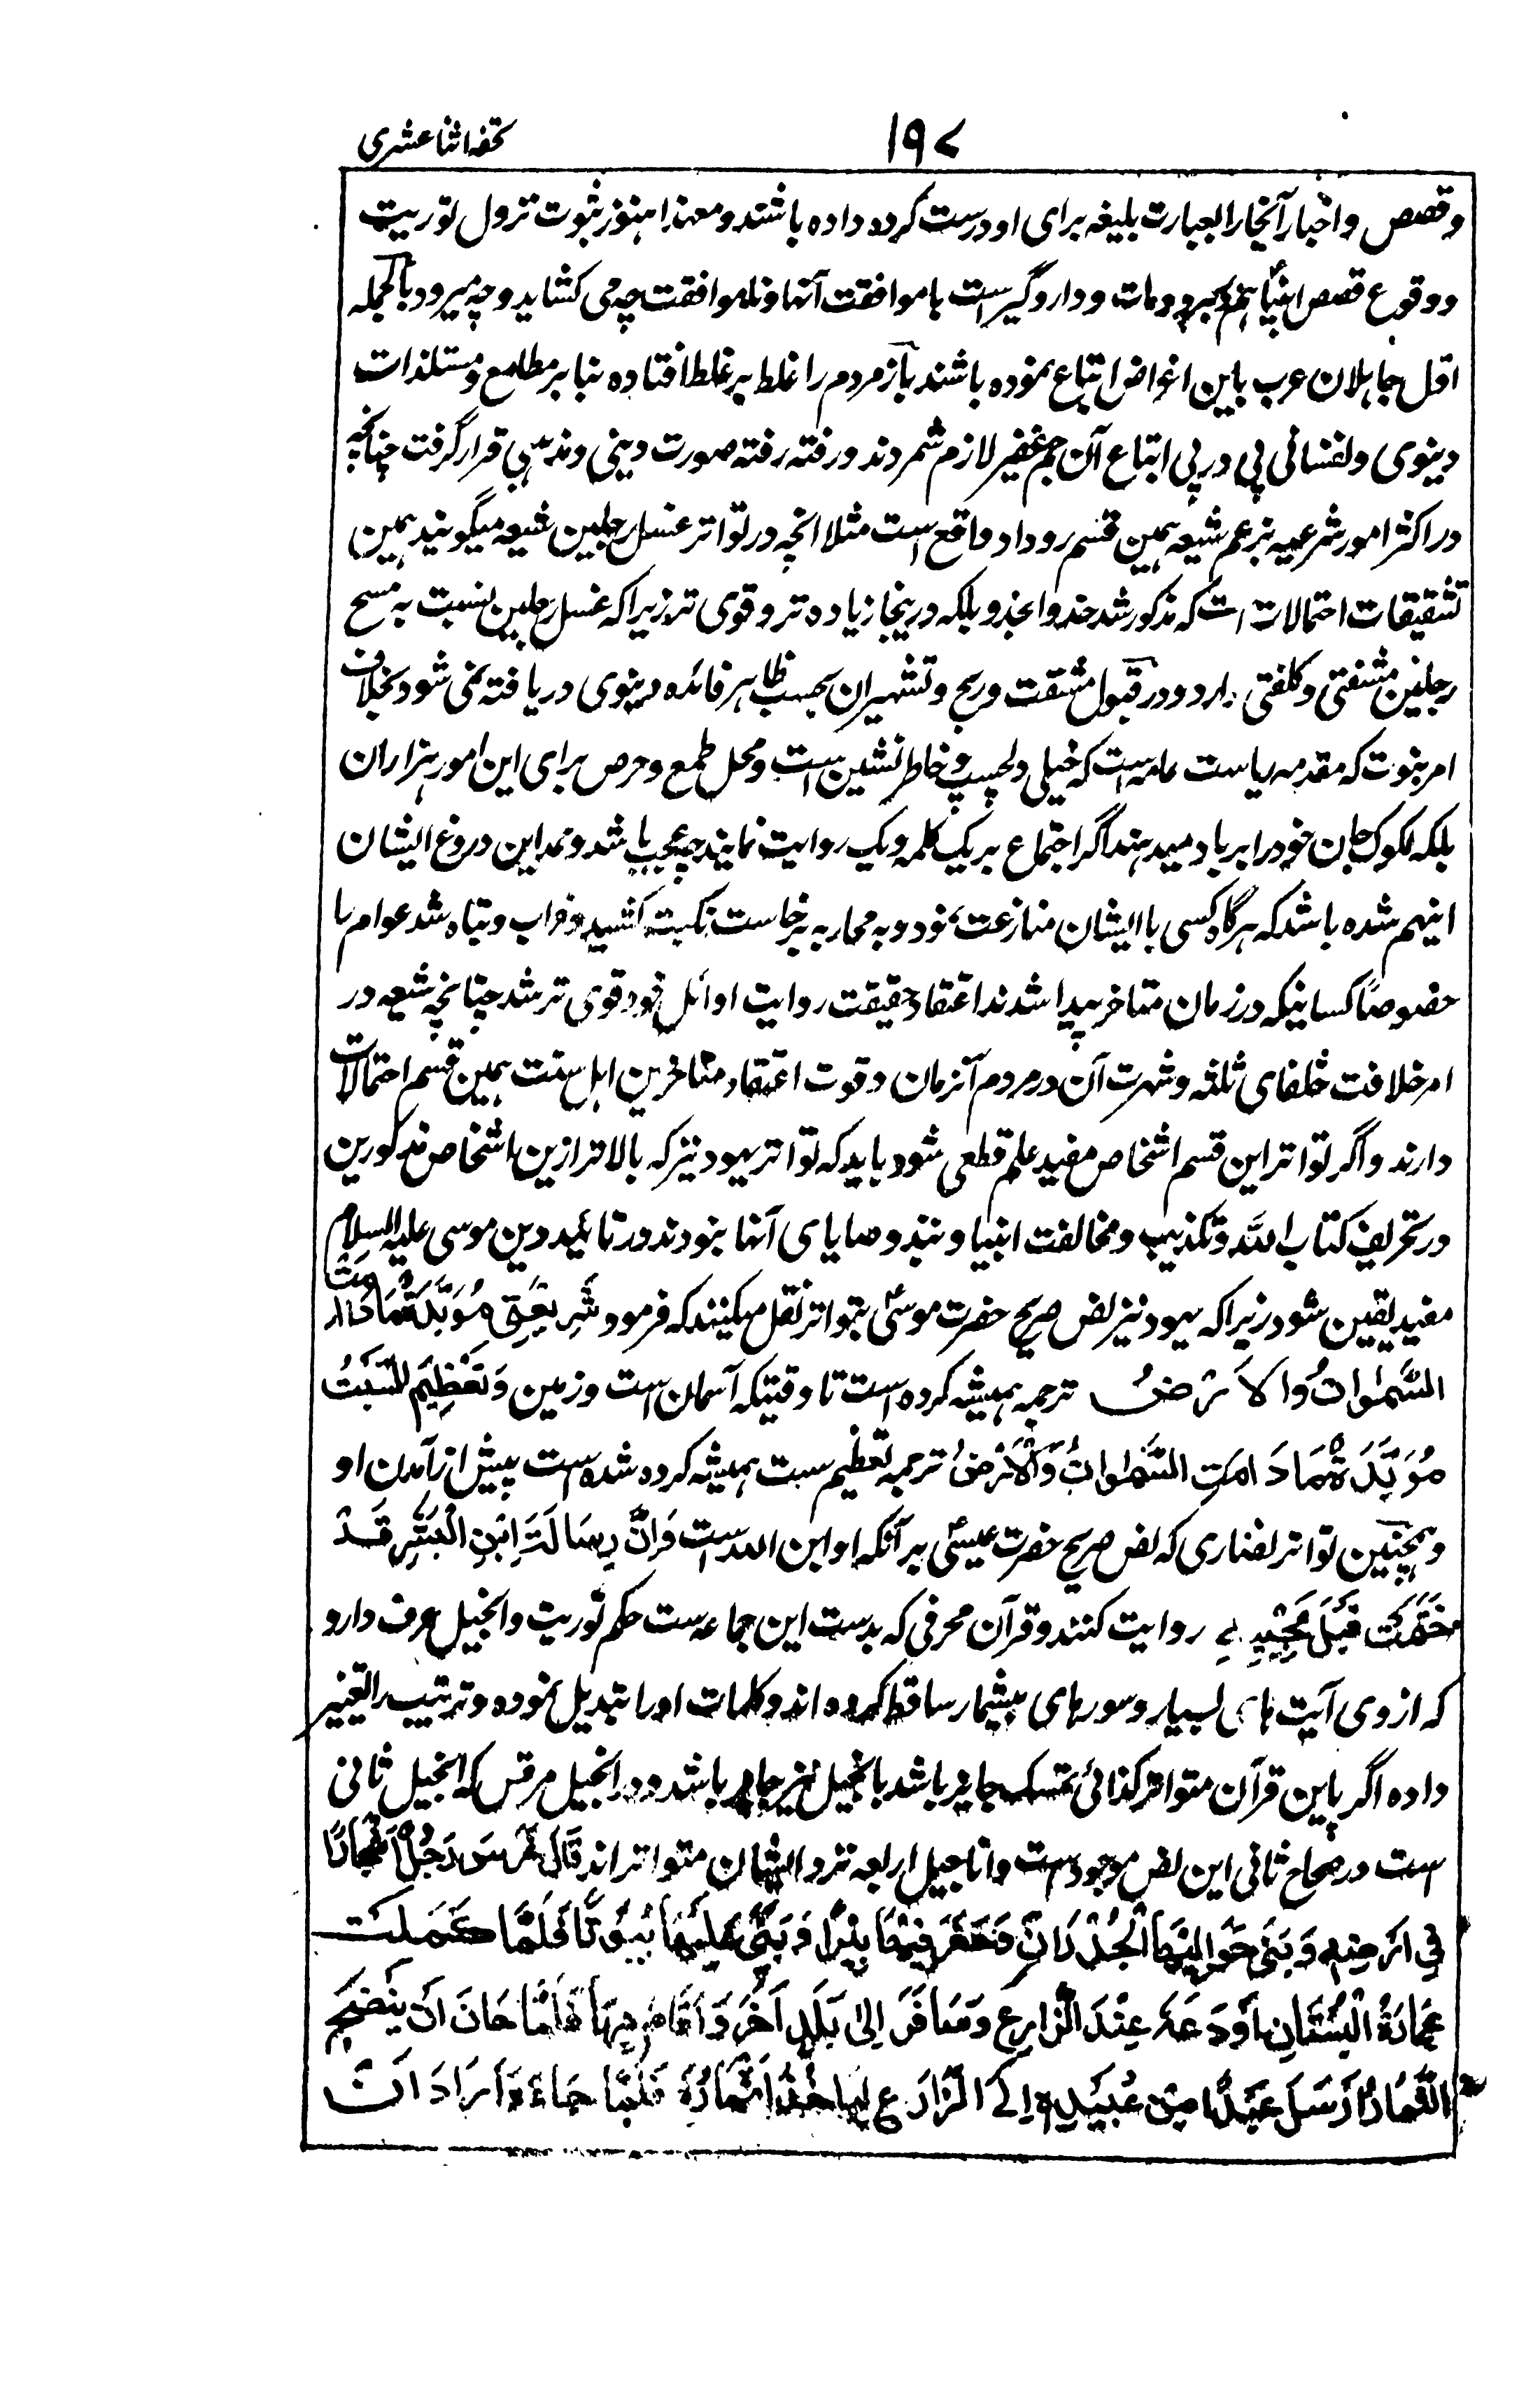 ۱۹۷
تحفه اثنا عشری
و قصص و اخبار آنجا را بعبارت بلیغه برای او درست کرده داده باشند و معهذا هنوز ثبوت نزول توریت
و وقوع قصص انبیا هم و مات و دار و گیر است با موافقت آنها و ناموافقت چه می کشاید و چه میرود بالجمله
اول جاهلان عرب باین اغراض اتباع نموده باشند باز مردم را غلط بر غلط افتاده بنا بر مطامع و مستلذات
دینوی و نفسانی پی در پی اتباع آن جم غفیر لازم شمردند و رفته رفته صورت دینی و مذهبی قرار گرفت چنانچه
در اکثر امور شرعیه بزعم شیعه همین قسم رو داد واقع است مثلا انچه در تواتر غسل رجلین شیعه میگویند همین
تشقیقات احتمالات است که مذکور شد حذوا بحذو بلکه درینجا زیاده تر و قوی تر زیرا که غسل رجلین نسبت به مسح
رجلین مشقتی و کلفتی دارد و در قبول مشقت و رنج و تشهیر ان بحسب ظاهر فائده دینوی دریافته نمی شود بخلاف
امر نبوت که مقدمه ریاست عامه است که خیلی دلچسپ و خاطر نشین است و محل طمع و حرص برای این امور هزاران
بلکه لکوک جان خود را بر باد میدهند اگر اجتماع بر یک کلمه و یک روایت نمایند چه عجب باشد و ممد این دروغ ایشان
اینهم شده باشد که هرگاه کسی با ایشان منازعت نمود و به محاربه برخاست نکبت کشید و خراب و تباه شد عوام را
خصوصاً کسانیکه در زمان متاخر پیدا شدند اعتقاد حقیقت روایت اوائل خود قوی تر شد چنانچه شیعه در
امر خلافت خلفای ثلثه و شهرت آن در مردم آنزمان و قوت اعتقاد متاخرین اهل سنت همین قسم احتمالات
دارند و اگر تواتر این قسم اشخاص مفید علم قطعی شود باید که تواتر یهود نیز که بالاتر ازین اشخاص مذکورین
در تحریف کتاب الله و تکذیب و مخالفت انبیا و نبذ وصایای آنها نبودند در تائید دین موسی علیه السلام
مفید یقین شود زیرا که یهود نیز نص صریح حضرت موسیٰ بتواتر نقل میکنند که فرمود شَرِیعَتِی مُؤَبَّدَةٌ مَادَامَتِ
السَّمٰوَاتُ وَالْاَرْضُ ترجمه همیشه کرده است تا وقتیکه آسمان است و زمین وَتَعْظِیْمُ السَّبْتِ
مُؤَبَّدَةٌ مَادَامَتِ السَّمٰوَاتُ وَالْاَرْضُ ترجمه تعظیم سبت همیشه کرده شده است پیش از آمدن او
و همچنین تواتر نصاری که نص صریح حضرت عیسیٰ بر آنکه او ابن الله است وَاِنَّ رِسَالَةَ اِبْنِ الْبَشَرِ قَدْ
خُتِمَتْ قَبْلَ مَجِیْئِهٖ روایت کنند و قرآن محرفی که بدست این جماعه ست حکم توریت و انجیل محرف دارد
که از وی آیت های بسیار و سورهای بیشمار ساقط کرده اند و کلمات او را تبدیل نموده و ترتیب را تغییر
داده اگر باین قرآن متواتر کذائی تمسک جایز باشد بانجیل نیز جایز باشد و در انجیل مرقس که انجیل ثانی
است در صحاح ثانی این نص موجود است و اناجیل اربعه نزد ایشان متواتر اند قَالَ غَرَسَ رَجُلٌ اَشْجَارًا
فِی اَرْضِهٖ وَبَنٰی حَوَالَیْهَا الْجُدْرَانَ وَحَفَرَ فِیْهَا بِئْرًا وَبَنٰی عَلَیْهَا بُیُوْتًا فَلَمَّا کَمُلَتْ
عِمَارَةُ الْبُسْتَانِ اَوْدَعَهُ عِنْدَ الزَّارِعِ وَسَافَرَ اِلٰی بَلَدٍ اٰخَرَ وَاَقَامَ بِهَا فَلَمَّا حَانَ اَنْ یَنْضَجَ
الثِّمَارُ اَرْسَلَ عَبْدًا مِنْ عَبِیْدِهٖ اِلَی الزَّارِعِ لِیَاخُذَ اَثْمَارَهُ فَلَمَّا جَاءَ وَاَرَادَ اَنْ